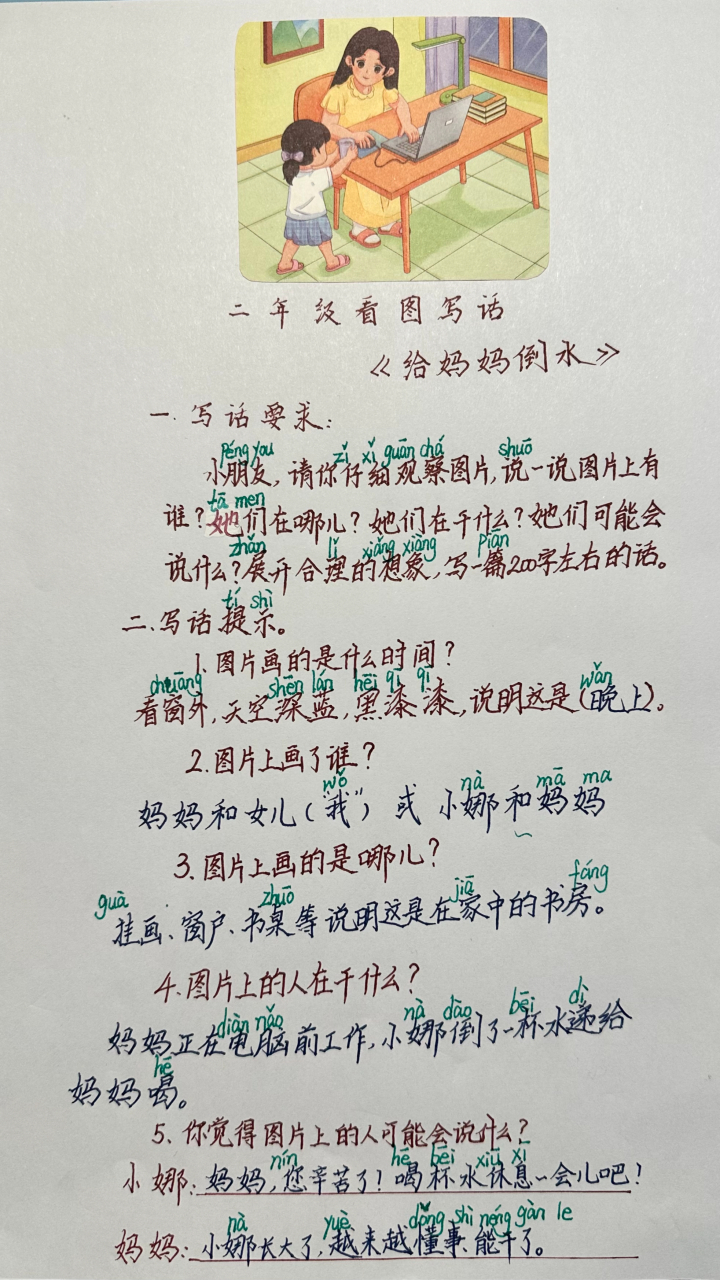 二年级看图写话
《给妈妈倒水》
一.写话要求:
péng you zǐ xì guān chá shuō
小朋友,请你仔细观察图片,说一说图片上有
tā men
谁?她们在哪儿?她们在干什么?她们可能会
zhǎn lǐ xiǎng xiàng piān
说什么?展开合理的想象,写一篇200字左右的话。
tí shì
二、写话提示。
1.图片画的是什么时间?
chuāng shēn lán hēi qī qī wǎn
看窗外,天空深蓝,黑漆漆,说明这是(晚上)。
2.图片上画了谁?
wǒ nà mā ma
妈妈和女儿(“我”)或 小娜和妈妈
3.图片上画的是哪儿?
guà zhuō jiā fáng
挂画、窗户、书桌等说明这是在家中的书房。
4.图片上的人在干什么?
diàn nǎo nà dào bēi dì
妈妈正在电脑前工作,小娜倒了一杯水递给
hē
妈妈喝。
5、你觉得图片上的人可能会说什么?
nín hē bēi xiū xī
小娜:妈妈,您辛苦了!喝杯水休息一会儿吧!
nà yuè dǒng shì néng gàn le
妈妈:小娜长大了,越来越懂事、能干了。